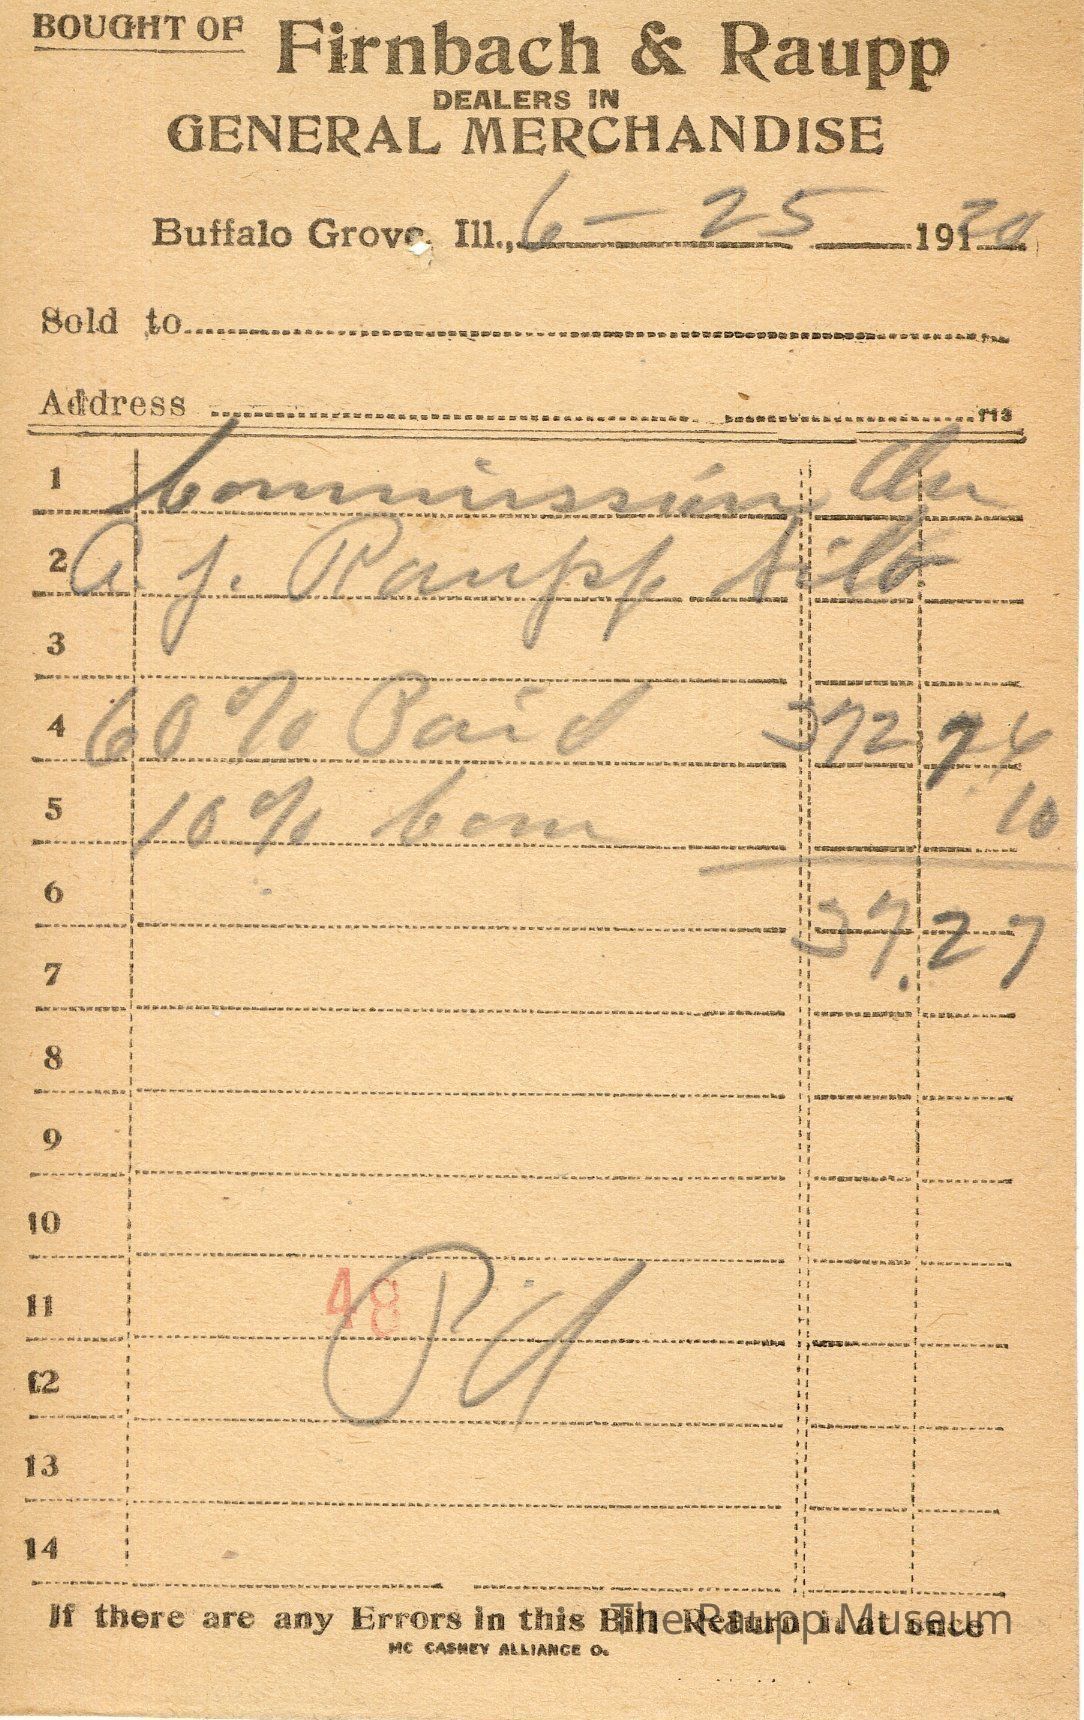 BOUGHT OF Firnbach & Raupp
DEALERS IN
GENERAL MERCHANDISE
Buffalo Grove, Ill., 6 - 25 1920
Sold to
Address
1 Commission on
2 A. J. Raupp Silo
3
4 60% Paid 372 74
5 10% Com 10
6 37.27
7
8
9
10
11 48 Pd
12
13
14
If there are any Errors in this Bill Return it at once
The Raupp Museum
MC CASKEY ALLIANCE O.